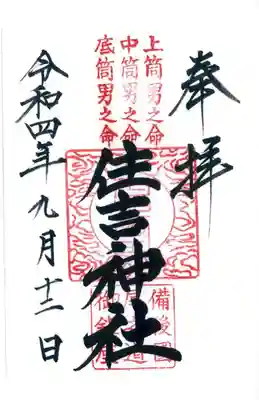 奉拝
上筒男之命
中筒男之命
底筒男之命
住吉神社
備後國
尾道
御鎮座
令和四年九月十二日